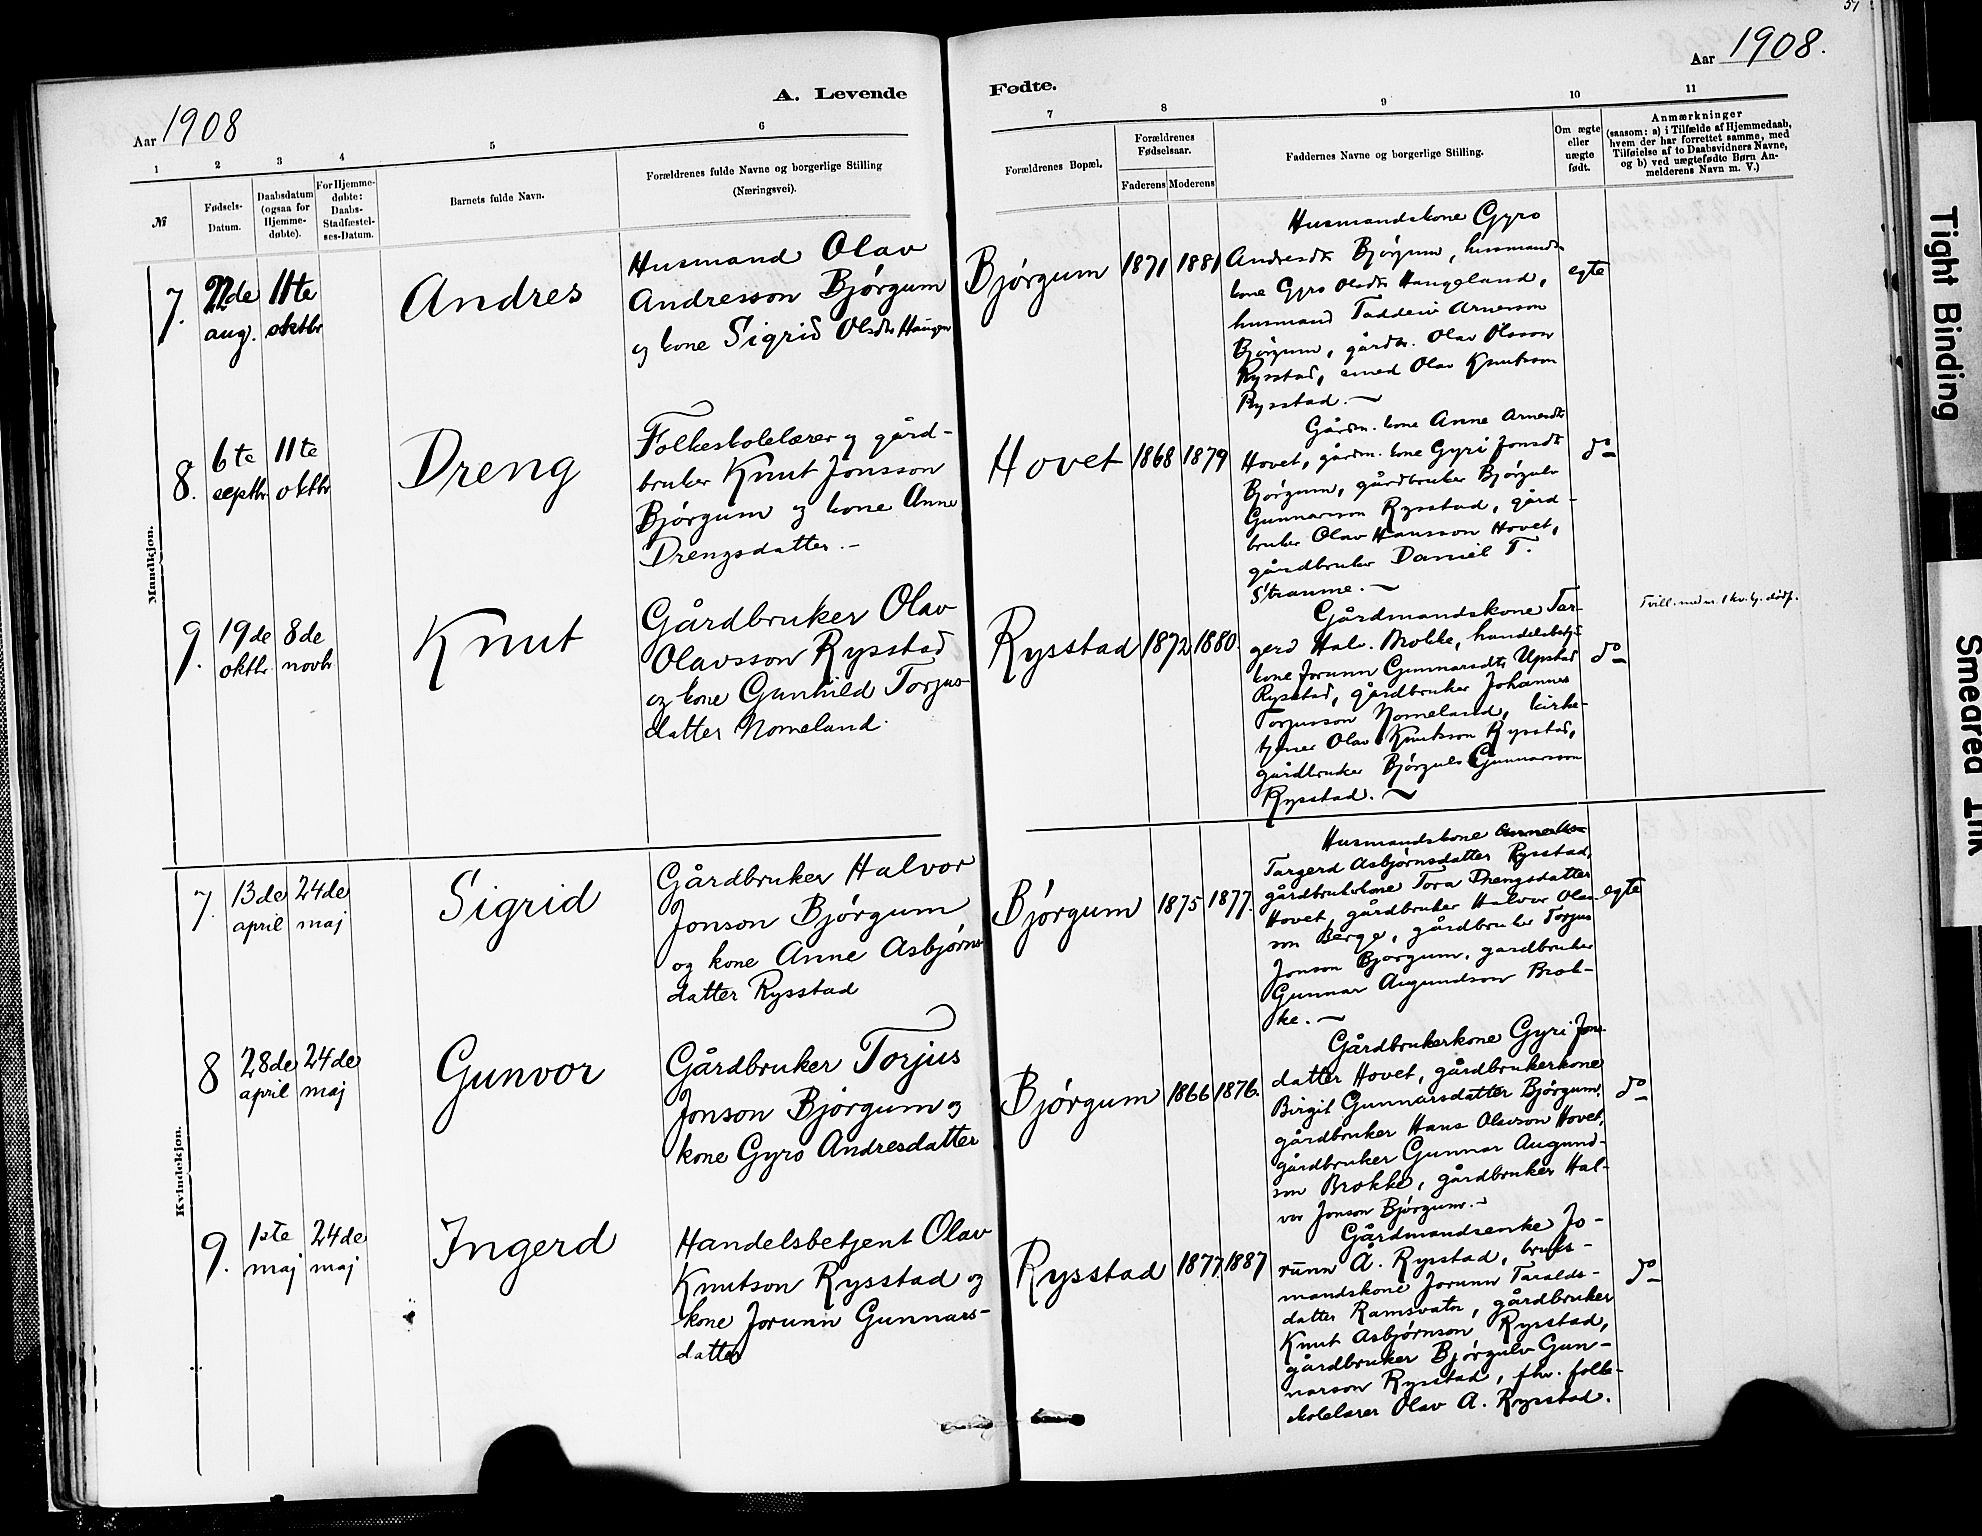 51
Aar 1908
A. Levende
Fødte.
Aar 1908.
1 2 3 4 5 6
7 8 9 10 11
№
Fødsels-
Datum.
Daabsdatum
(ogsaa for
Hjemme-
døbte).
For Hjemme-
døbte:
Daabs-
Stadfæstel-
ses-Datum.
Barnets fulde Navn.
Forældrenes fulde Navne og borgerlige Stilling
(Næringsvei).
Forældrenes Bopæl.
Forældrenes
Fødselsaar.
Faderens
Moderens
Faddernes Navne og borgerlige Stilling.
Om ægte
eller
uægte
født.
Anmærkninger
(saasom: a) i Tilfælde af Hjemmedaab,
hvem der har forrettet samme, med
Tilføielse af to Daabsvidners Navne,
og b) ved uægtefødte Børn An-
melderens Navn m. V.)
Mandkjøn.
7.
22de
aug.
11te
oktbr
Andres
Husmand Olav
Andresson Bjørgum
og kone Sigrid Olsdtr Haugen
Bjørgum
1871
1881
Husmandskone Gyro
Andresdtr Bjørgum, husmands-
kone Gyro Olsdtr Haugeland,
husmand Taddeiv Arneson
Bjørgum, gårdbr. Olav Olsson
Rysstad, Olav Knutsson
Rysstad.
egte
8.
6te
septbr
11te
oktbr
Dreng
Folkeskolelærer og gård-
bruker Knut Jonsson
Bjørgum og kone Anne
Drengsdatter.-
Hovet
1868
1879
Gårdm. kone Anne Arnesdtr
Hovet, gårdm. kone Gyri Jonsdtr
Bjørgum, gårdbruker Bjørgulv
Gunnarsson Rysstad, gård-
bruker Olav Hansson Hovet,
gårdbruker Daniel T.
Straume.
do
9.
19de
oktbr
8de
novbr
Knut
Gårdbruker Olav
Olavsson Rysstad
og kone Gunhild Torjus-
datter Nomeland.
Rysstad
1872
1880.
Gårdmandskone Tar-
gerd Halv. Brokke, handelsbetj.
kone Jorunn Gunnarsdtr Upstad
Rysstad, gårdbruker Johannes
Torjusson Nomeland, kirke-
tjener Olav Knutsson Rysstad,
gårdbruker Bjørgulv Gunnarsson
Rysstad.
do
Tvill. med nr. 1 kv. kj. dødf.
Kvindekjøn.
7.
13de
april
24de
maj
Sigrid
Gårdbruker Halvor
Jonson Bjørgum
og kone Anne Asbjørns-
datter Rysstad
Bjørgum
1875
1877.
Husmandskone
Targerd Asbjørnsdatter Rysstad,
gårdbrukerkone Tora Drengsdatter
Hovet, gårdbruker Halvor Olav-
son Berge, gårdbruker Torjus
Jonson Bjørgum, gårdbruker
Gunnar Augundson Brok-
ke.
egte
8
28de
april
24de
maj
Gunvor
Gårdbruker Torjus
Jonson Bjørgum og
kone Gyro Andresdatter
Bjørgum
1866
1876.
Gårdbrukerkone Gyri Jons-
datter Hovet, gårdbrukerkone
Birgit Gunnarsdatter Bjørgum,
gårdbruker Hans Olavson Hovet,
gårdbruker Gunnar Augund-
son Brokke, gårdbruker Hal-
vor Jonson Bjørgum.-
do
9.
1ste
maj
24de
maj
Ingerd
Handelsbetjent Olav
Knutson Rysstad og
kone Jorunn Gunnars-
datter
Rysstad
1877.
1887
Gårdmandsenke Jo-
runn A. Rysstad, bruks-
mandskone Jorunn Taralds-
datter Ramsvatn, gårdbruker
Knut Asbjørnson Rysstad,
gårdbruker Bjørgulv Gun-
narson Rysstad, fhv. folke-
skolelærer Olav A. Rysstad.
do
Tight Binding
Smeared Ink